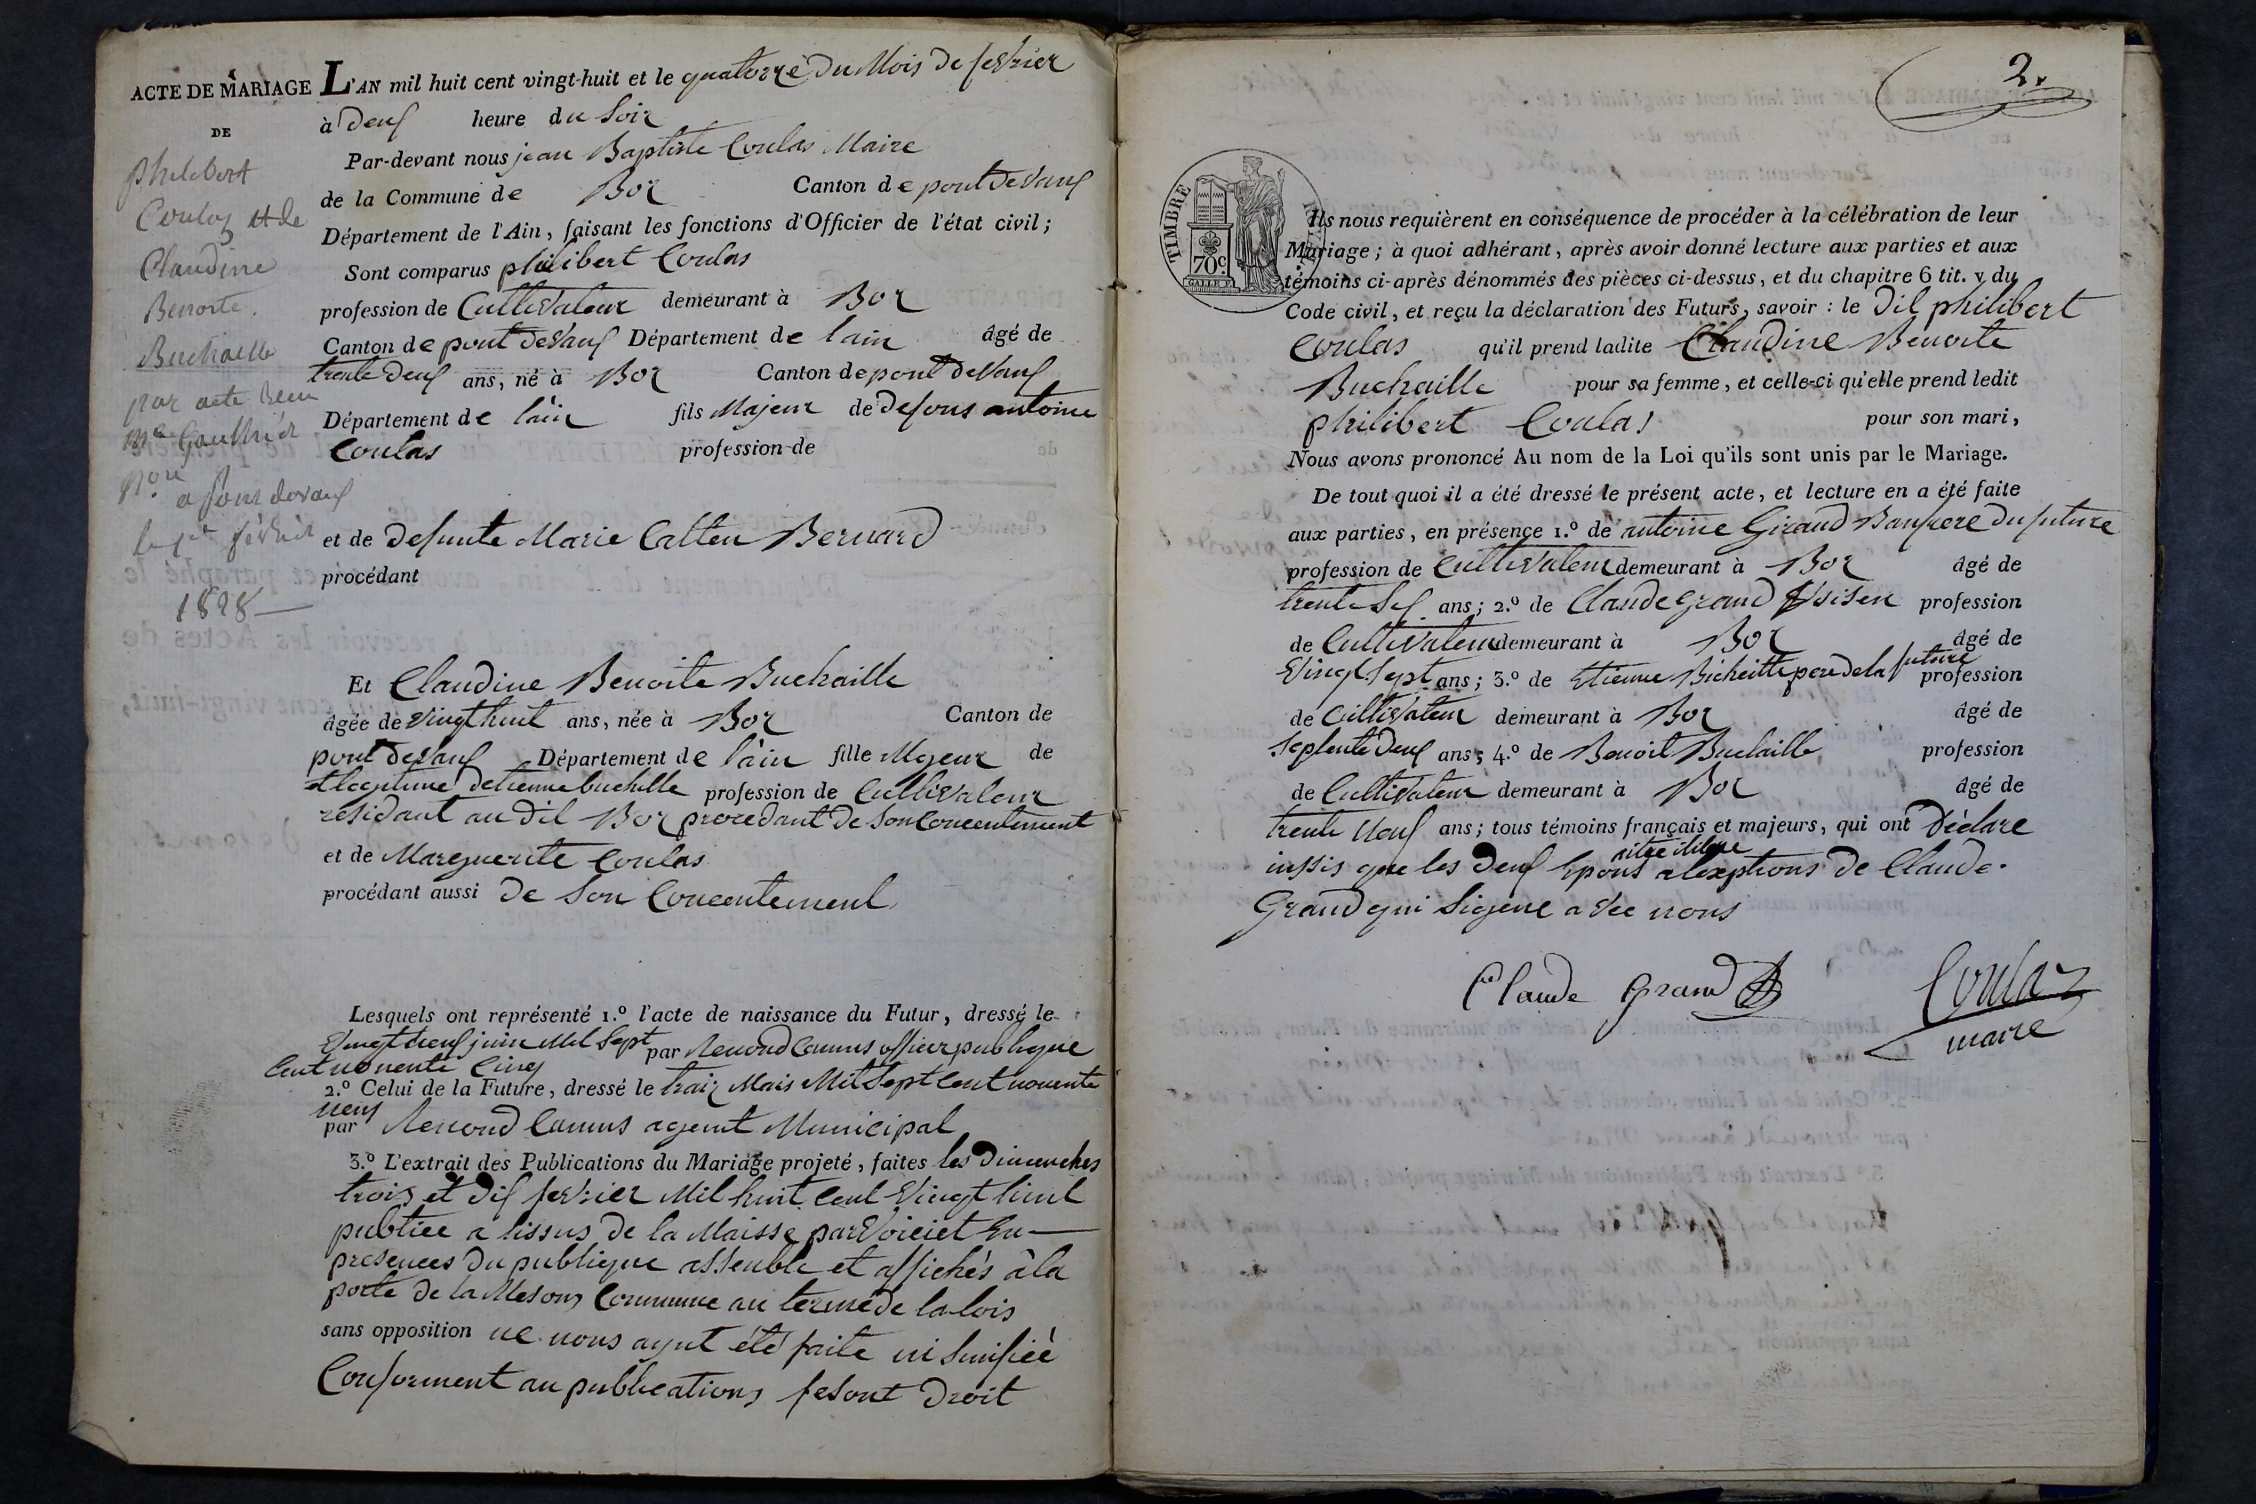 ACTE DE MARIAGE
DE
Philibert
Coulas et de
Claudine
Benoite
Buchaille
par acte Recu
Me Gauthier
nore
a pont devaux
le 1er février
1828
L'AN mil huit cent vingt-huit et le quatorze du Mois de fevrier
à deux heure du Soir
Par-devant nous jean Baptiste Coulas Maire
de la Commune de Boz Canton de pont de Vaux
Département de l'Ain, faisant les fonctions d'Officier de l'état civil;
Sont comparus philibert Coulas
profession de Cultivateur demeurant à Boz
Canton de pont deVaux Département de lain âgé de
trente deux ans, né à Boz Canton de pont deVaux
Département de lain fils Majeur de defons antoine
Coulas profession de
et de defunte Marie Catten Bernard
procédant
Et Claudine Benoite Buchaille
âgée de vingt huit ans, née à Boz Canton de
pont devaux Département de lain fille Mojeur de
detienne buchelle profession de Cultivateur
residant au dit Boz procedant de Son Concentement
et de Marguerite Coulas
procédant aussi de Son Concentement
Lesquels ont représenté 1.º l'acte de naissance du Futur, dressé le
juin Mil Sept par Renond Camus officier publique
Cent nonente Cinq
2.º Celui de la Future, dressé le traiz Mais Mil Sept Cent nonente
neuf
par Renond Camus agent Municipal
3.º L'extrait des Publications du Mariage projeté, faites les Dimenches
trois et dix fevrier Mil huit Cent Vingt huit
publiee a lissus de la Maisse par Voie et En
presences du publique assemble et affichés à la
porte de la Meson Commune au terme de la lois
sans opposition ne nous aynt été faite ni Sinifiéé
Conforment au publications fesont droit
2.
TIMBRE
70c
Ils nous requièrent en conséquence de procéder à la célébration de leur
Mariage; à quoi adhérant, après avoir donné lecture aux parties et aux
témoins ci-après dénommés des pièces ci-dessus, et du chapitre 6 tit. v du
Code civil, et reçu la déclaration des Futurs, savoir : le dit philibert
Coulas qu'il prend ladite Claudine Benoite
Buchaille pour sa femme, et celle-ci qu'elle prend ledit
philibert Coulas pour son mari,
Nous avons prononcé Au nom de la Loi qu'ils sont unis par le Mariage.
De tout quoi il a été dressé le présent acte, et lecture en a été faite
aux parties, en présence 1.º de antoine Giraud Baufrere du future
profession de Cultivateur demeurant à Boz âgé de
trente Sex ans; 2.º de Claude Grand Voisen profession
de Cultivateur demeurant à Boz âgé de
Vingt Sept ans; 3.º de Etienne Bicheille pere de la future profession
de Cultivateur demeurant à Boz âgé de
Septente deux ans; 4.º de Benoit Buchaille profession
de Cultivateur demeurant à Boz âgé de
trente Neuf ans; tous témoins français et majeurs, qui ont Déclare
inssis que les deux Epous alexptions de Claude
Grand qui Sigene avec nous
Claude Grand
Coulas
maire